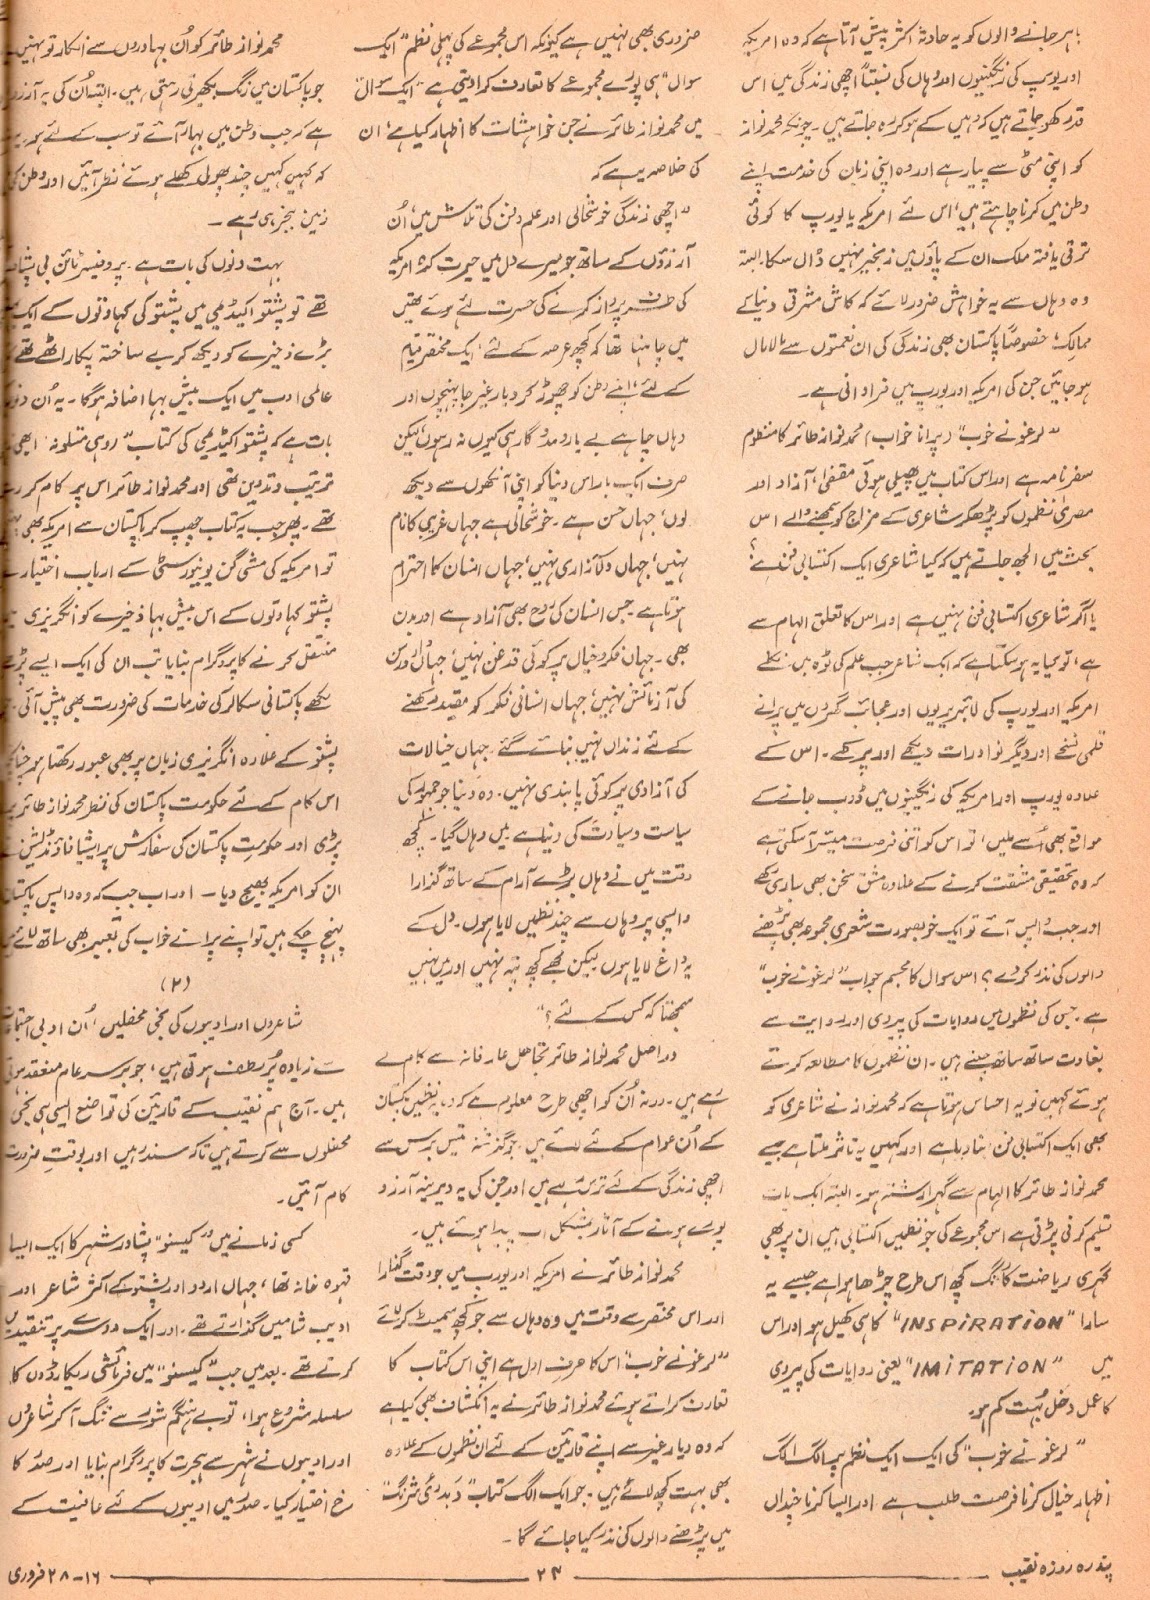 باہر جانے والوں کو یہ حادثہ اکثر پیش آتا ہے کہ وہ امریکہ
اور یورپ کی رنگینیوں اور وہاں کی نسبتاً اچھی زندگی میں اس
قدر کھو جاتے ہیں کہ وہیں کے ہو کر رہ جاتے ہیں۔ چونکہ محمد نواز
کو اپنی مٹی سے پیار ہے اور وہ اپنی زبان کی خدمت اپنے
وطن میں کرنا چاہتے ہیں، اس لئے امریکہ یا یورپ کا کوئی
ترقی یافتہ ملک ان کے پاؤں میں زنجیر نہیں ڈال سکا۔ البتہ
وہ وہاں سے یہ خواہش ضرور لائے کہ کاش مشرقی دنیا کے
ممالک، خصوصاً پاکستان بھی زندگی کی ان نعمتوں سے مالامال
ہو جائیں جن کی امریکہ اور یورپ میں فراوانی ہے۔
"لرغونے خوب" (پرانا خواب) محمد نواز طائر کا منظوم
سفرنامہ ہے اور اس کتاب میں پھیلی ہوئی مقفیٰ، آزاد اور
معریٰ نظموں کو پڑھ کر شاعری کے مزاج کو سمجھنے والے اس
بحث میں الجھ جاتے ہیں کہ کیا شاعری ایک اکتسابی فن ہے؟
یا اگر شاعری اکتسابی فن نہیں ہے اور اس کا تعلق الہام سے
ہے، تو کیا یہ ہو سکتا ہے کہ ایک شاعر جب علم کی ٹوہ میں نکلے
امریکہ اور یورپ کی لائبریریوں اور عجائب گھروں میں پرانے
قلمی نسخے اور دیگر نوادرات دیکھے اور پرکھے۔ اس کے
علاوہ یورپ اور امریکہ کی رنگینیوں میں ڈوب جانے کے
مواقع بھی اُسے ملیں، تو اس کو اتنی فرصت میسر آ سکتی ہے
کہ وہ تحقیقی مشقت کرنے کے علاوہ مشق سخن بھی جاری رکھے
اور جب واپس آئے تو ایک خوبصورت شعری مجموعہ بھی پڑھنے
والوں کی نذر کر دے؟ اس سوال کا مجسم جواب "لرغونے خوب"
ہے۔ جس کی نظموں میں روایات کی پیروی اور روایت سے
بغاوت ساتھ ساتھ چلتے ہیں۔ ان نظموں کا مطالعہ کرتے
ہوئے کہیں تو یہ احساس ہوتا ہے کہ محمد نواز نے شاعری کو
بھی ایک اکتسابی فن بنا دیا ہے اور کہیں یہ تاثر ملتا ہے جیسے
محمد نواز طائر کا الہام سے گہرا رشتہ ہو۔ البتہ ایک بات
تسلیم کرنی پڑتی ہے اس مجموعے کی جو نظمیں اکتسابی ہیں ان پر بھی
گہری ریاضت کا رنگ کچھ اس طرح چڑھا ہوا ہے جیسے یہ
سارا "INSPIRATION" کا ہی کھیل ہو اور اس
میں "IMITATION" یعنی روایات کی پیروی
کا عمل دخل بہت کم ہو۔
"لرغونے خوب" کی ایک ایک نظم پر الگ الگ
اظہار خیال کرنا فرصت طلب ہے اور ایسا کرنا چنداں
ضروری بھی نہیں ہے کیونکہ اس مجموعے کی پہلی نظم "ایک
سوال" ہی پورے مجموعے کا تعارف کرا دیتی ہے "ایک سوال"
میں محمد نواز طائر نے جن خواہشات کا اظہار کیا ہے، ان
کی خلاصہ یہ ہے کہ
"اچھی زندگی خوشحالی اور علم و فن کی تلاش میں، اُن
آرزؤں کے ساتھ جو میرے دل میں حیرت کدۂ امریکہ
کی طرف پرواز کرنے کی حسرت لئے ہوئے تھیں
میں چاہتا تھا کہ کچھ عرصہ کے لئے، ایک مختصر قیام
کے لئے، اپنے وطن کو چھوڑ کر دیار غیر جا پہنچوں اور
وہاں چاہے بے یار و مددگار ہی کیوں نہ رہوں، لیکن
صرف ایک بار اس دنیا کو اپنی آنکھوں سے دیکھ
لوں، جہاں حسن ہے۔ خوشحالی ہے جہاں غریبی کا نام
نہیں، جہاں دلآزاری نہیں، جہاں انسان کا احترام
ہوتا ہے۔ جس انسان کی روح بھی آزاد ہے اور بدن
بھی۔ جہاں فکر و خیال پر کوئی قدغن نہیں، جہاں دار و رسن
کی آزمائش نہیں، جہاں انسانی فکر کو مقید رکھنے
کے لئے زنداں نہیں بنائے گئے۔ جہاں خیالات
کی آزادی پر کوئی پابندی نہیں۔ وہ دنیا جو جمہور کی
سیاست و سیادت کی دنیا ہے میں وہاں گیا۔ کچھ
وقت میں نے وہاں بڑے آرام کے ساتھ گذارا
واپسی پر وہاں سے چند نظمیں لایا ہوں۔ دل کے
یہ داغ لایا ہوں لیکن مجھے کچھ پتہ نہیں اور میں نہیں
سمجھتا کہ کس کے لئے؟"
دراصل محمد نواز طائر تجاہل عارفانہ سے کام لے
رہے ہیں۔ ورنہ اُن کو اچھی طرح معلوم ہے کہ وہ یہ نظمیں پاکستان
کے اُن عوام کے لئے لائے ہیں۔ جو گذشتہ تیس برس سے
اچھی زندگی کے لئے ترس رہے ہیں اور جن کی یہ دیرینہ آرزو
پوری ہونے کے آثار بمشکل اب پیدا ہوئے ہیں۔
محمد نواز طائر نے امریکہ اور یورپ میں جو وقت گذارا
اور اس مختصر سے وقت میں وہ وہاں سے جو کچھ سمیٹ کر لائے
"لرغونے خوب" اس کا حرف اول ہے اپنی اس کتاب کا
تعارف کراتے ہوئے محمد نواز طائر نے یہ انکشاف بھی کیا ہے
کہ وہ دیار غیر سے اپنے قارئین کے لئے ان نظموں کے علاوہ
بھی بہت کچھ لائے ہیں۔ جو ایک الگ کتاب "د بدرئ شرنگ"
میں پڑھنے والوں کی نذر کیا جائے گا۔
محمد نواز طائر کو اُن بہادروں سے انکار تو نہیں
جو پاکستان میں رنگ بکھیرتی رہتی ہیں۔ البتہ اُن کی یہ آرزو
ہے کہ جب وطن میں بہار آئے تو سب کے لئے ہو۔ یہ
کہ کہیں کہیں چند پھول کھلے ہوئے نظر آئیں اور وطن کی
زمین بنجر ہی رہے۔
بہت دنوں کی بات ہے۔ پروفیسر ٹائن بی پشاور
تھے تو پشتو اکیڈیمی میں پشتو کی کہاوتوں کے ایک
بڑے ذخیرے کو دیکھ کر بے ساختہ پکار اٹھے تھے
عالمی ادب میں ایک بیش بہا اضافہ ہوگا۔ یہ اُن دنوں
بات ہے کہ پشتو اکیڈیمی کی کتاب "روہی متلونہ" ابھی
ترتیب و تدوین تھی اور محمد نواز طائر اس پر کام کر رہے
تھے۔ پھر جب یہ کتاب چھپ کر پاکستان سے امریکہ بھی
تو امریکہ کی مشی گن یونیورسٹی کے ارباب اختیار نے
پشتو کہاوتوں کے اس بیش بہا ذخیرے کو انگریزی
منتقل کرنے کا پروگرام بنایا تب ان کی ایک ایسے پڑھے
لکھے پاکستانی سکالر کی خدمات کی ضرورت بھی پیش آئی۔ جو
پشتو کے علاوہ انگریزی زبان پر بھی عبور رکھتا ہو۔ چنانچہ
اس کام کے لئے حکومت پاکستان کی نظر محمد نواز طائر پر
پڑی اور حکومت پاکستان کی سفارش پر ایشیا فاؤنڈیشن نے
ان کو امریکہ بھیج دیا۔ اور اب جب کہ وہ واپس پاکستان
پہنچ چکے ہیں تو اپنے پرانے خواب کی تعبیر بھی ساتھ لائے
(۲)
شاعروں اور ادیبوں کی نجی محفلیں، اُن ادبی اجتماعات
سے زیادہ پُر لطف ہوتی ہیں، جو برسر عام منعقد ہوتی
ہیں۔ آج ہم نقیب کے قارئین کی تواضع ایسی ہی نجی
محفلوں سے کرتے ہیں تاکہ سند رہیں اور بوقتِ ضرورت
کام آئیں۔
کسی زمانے میں "کیسنو" پشاور شہر کا ایک ایسا
قہوہ خانہ تھا، جہاں اردو اور پشتو کے اکثر شاعر اور
ادیب شامیں گذارتے تھے۔ اور ایک دوسرے پر تنقیدیں
کرتے تھے۔ بعد میں جب "کیسنو" میں فرمائشی ریکارڈوں کا
سلسلہ شروع ہوا، تو بے ہنگم شور سے تنگ آ کر شاعروں
اور ادیبوں نے شہر سے ہجرت کا پروگرام بنایا اور صدر کا
رخ اختیار کیا۔ صدر میں ادیبوں کے لئے عافیت کے
پندرہ روزہ نقیب
۲۳
۱۶-۲۸ فروری